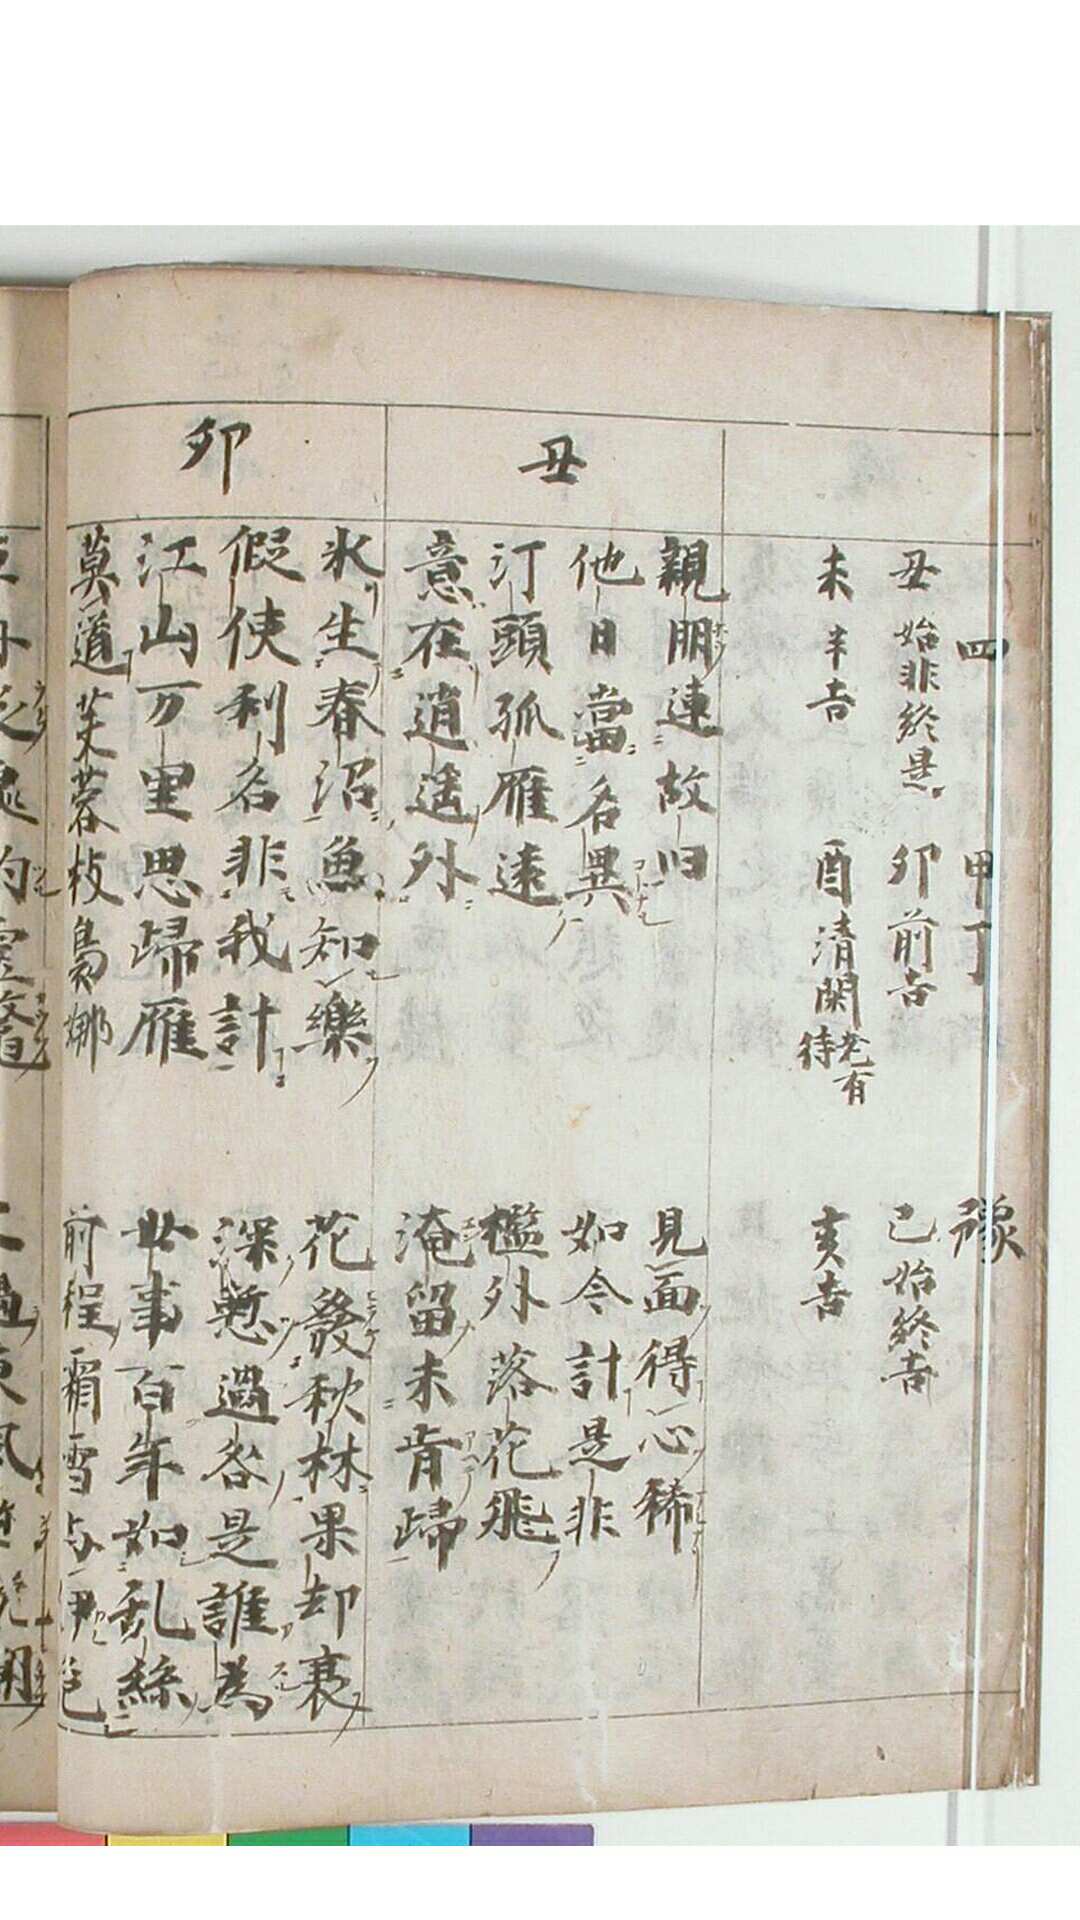 四 甲丁 豫
丑 始非終是 卯 前吉 已 始終吉
未 半吉 酉 清閑 老有待 亥 吉
丑
親朋連故归 見面得心稀
他日當名異 如今計是非
汀頭孤雁遠 檻外落花飛
意在逍遥外 淹留未肯歸
卯
水生春沼魚知樂 花發秋林果却衰
假使利名非我計 深慙過咎是誰為
江山万里思歸雁 世事百年如乱絲
莫道芙蓉枝裊娜 前程霜雪与伊